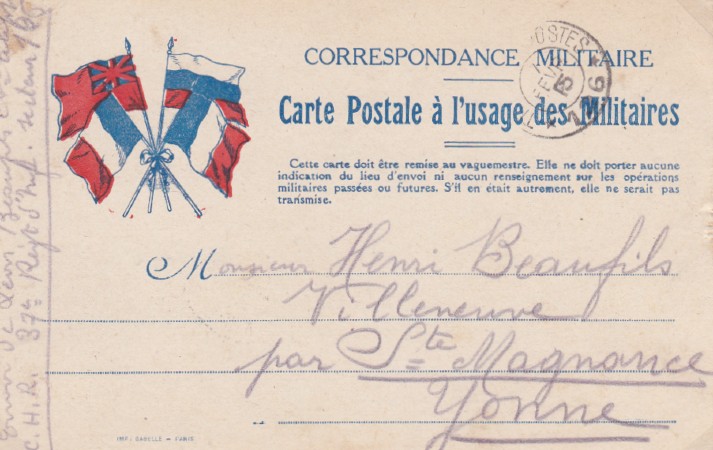 CORRESPONDANCE MILITAIRE
Carte Postale à l'usage des Militaires
Cette carte doit être remise au vaguemestre. Elle ne doit porter aucune
indication du lieu d'envoi ni aucun renseignement sur les opérations
militaires passées ou futures. S'il en était autrement, elle ne serait pas
transmise.
Monsieur Henri Beaufils
Villeneuve
par Ste Magnance
Yonne
IMP. CABELLE - PARIS
Envoi de Léon Beaufils
C.H.R. 37e Regt d'Inf. secteur
POSTES